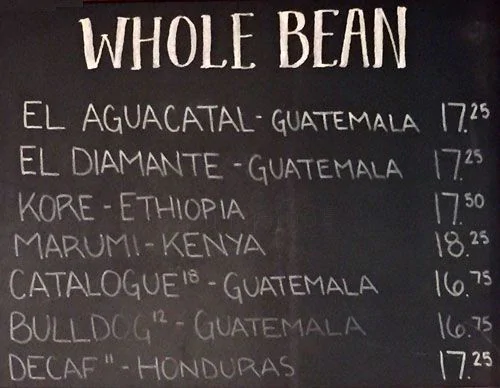 WHOLE BEAN
EL AGUACATAL - GUATEMALA 17.25
EL DIAMANTE - GUATEMALA 17.25
KORE - ETHIOPIA 17.50
MARUMI - KENYA 18.25
CATALOGUE¹⁸ - GUATEMALA 16.75
BULLDOG¹² - GUATEMALA 16.75
DECAF¹¹ - HONDURAS 17.25